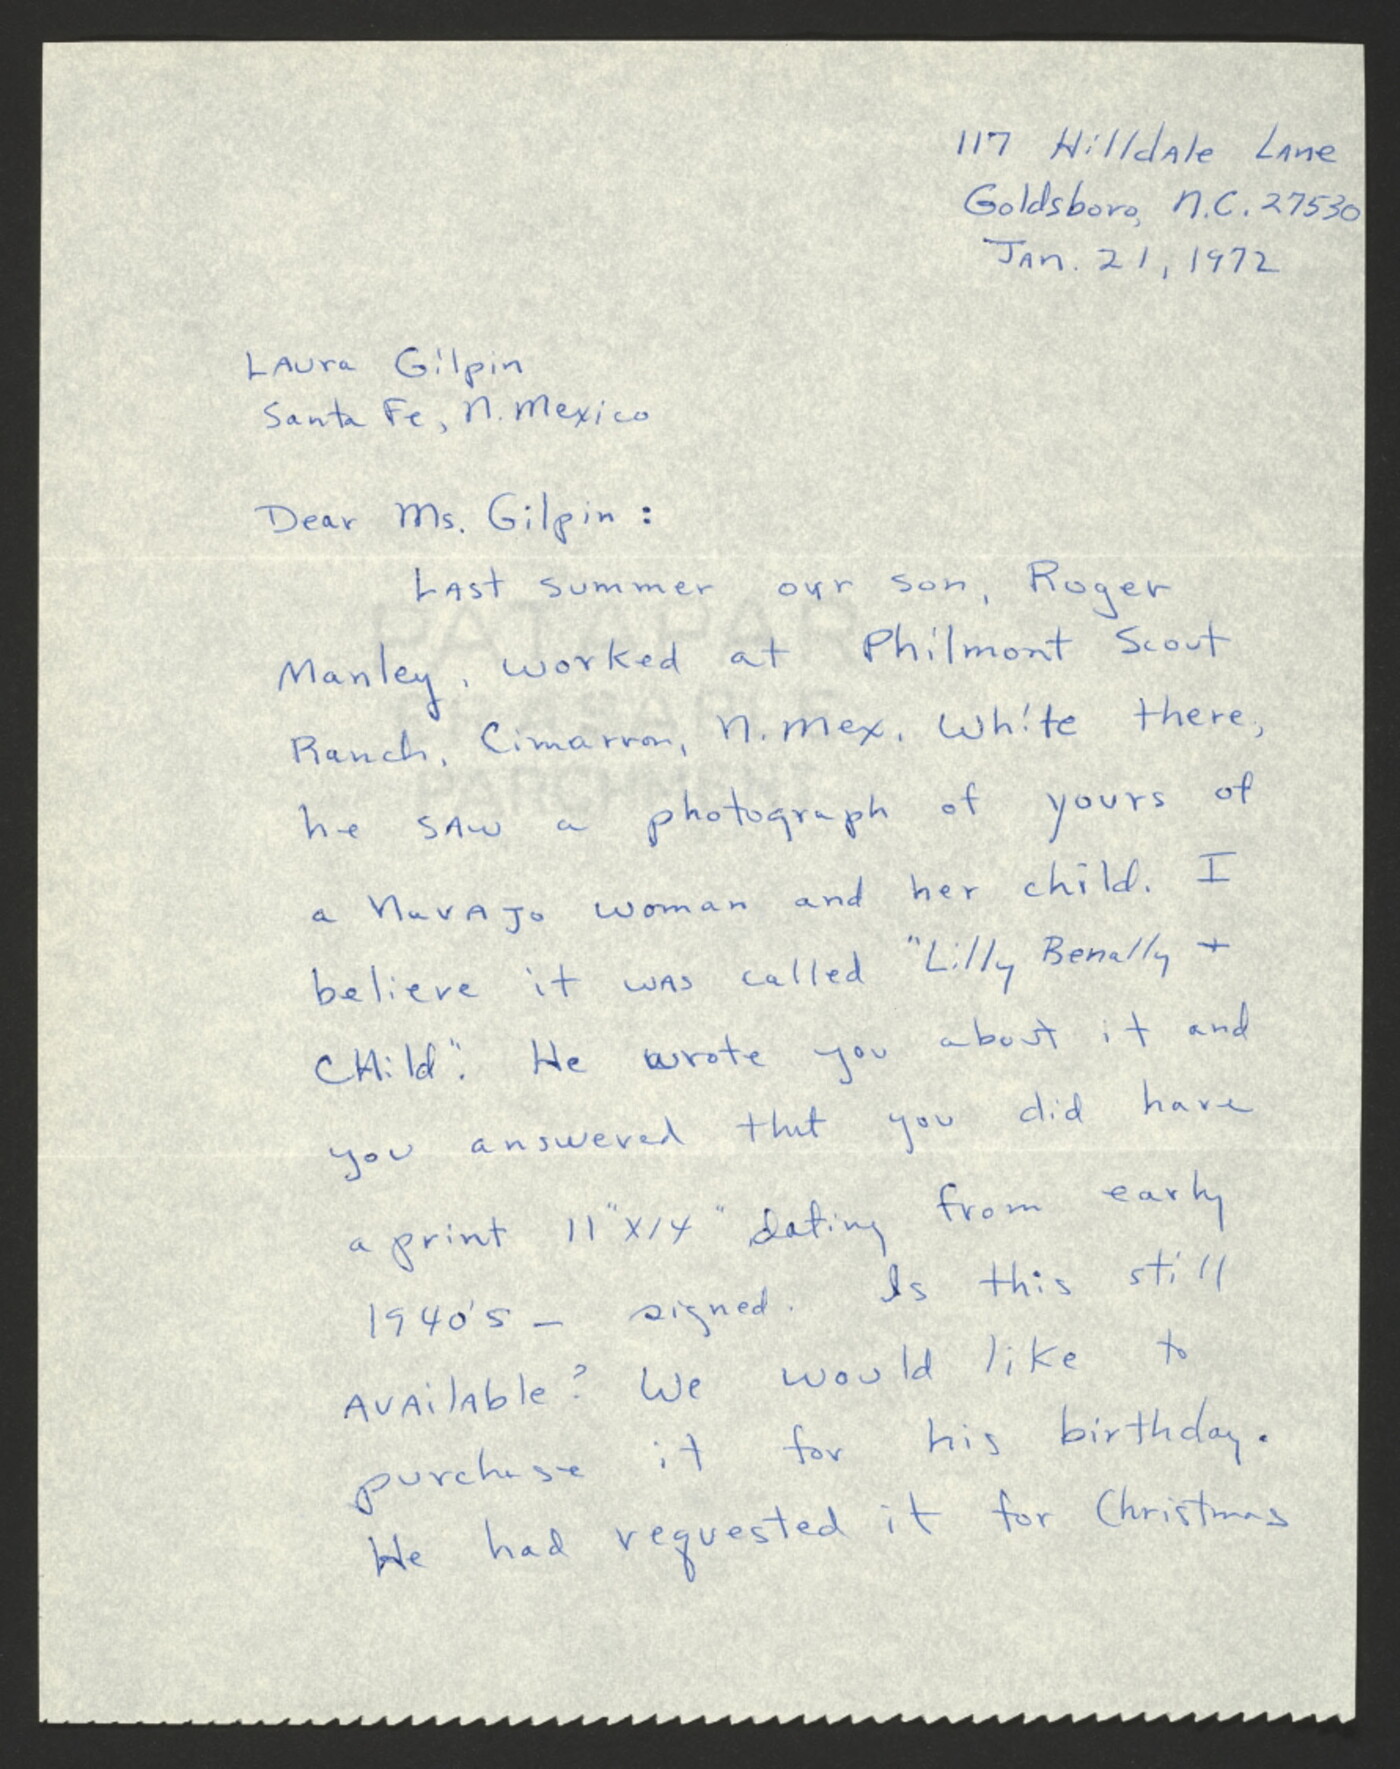 117 Hilldale Lane
Goldsboro, N.C. 27530
Jan. 21, 1972
Laura Gilpin
Santa Fe, N. Mexico
Dear Ms. Gilpin:
Last summer our son, Roger
Manley, worked at Philmont Scout
Ranch, Cimarron, N. Mex. While there,
he saw a photograph of yours of
a Navajo woman and her child. I
believe it was called "Lilly Benally +
Child". He wrote you about it and
you answered that you did have
a print 11"x14" dating from early
1940's — signed. Is this still
available? We would like to
purchase it for his birthday.
He had requested it for Christmas